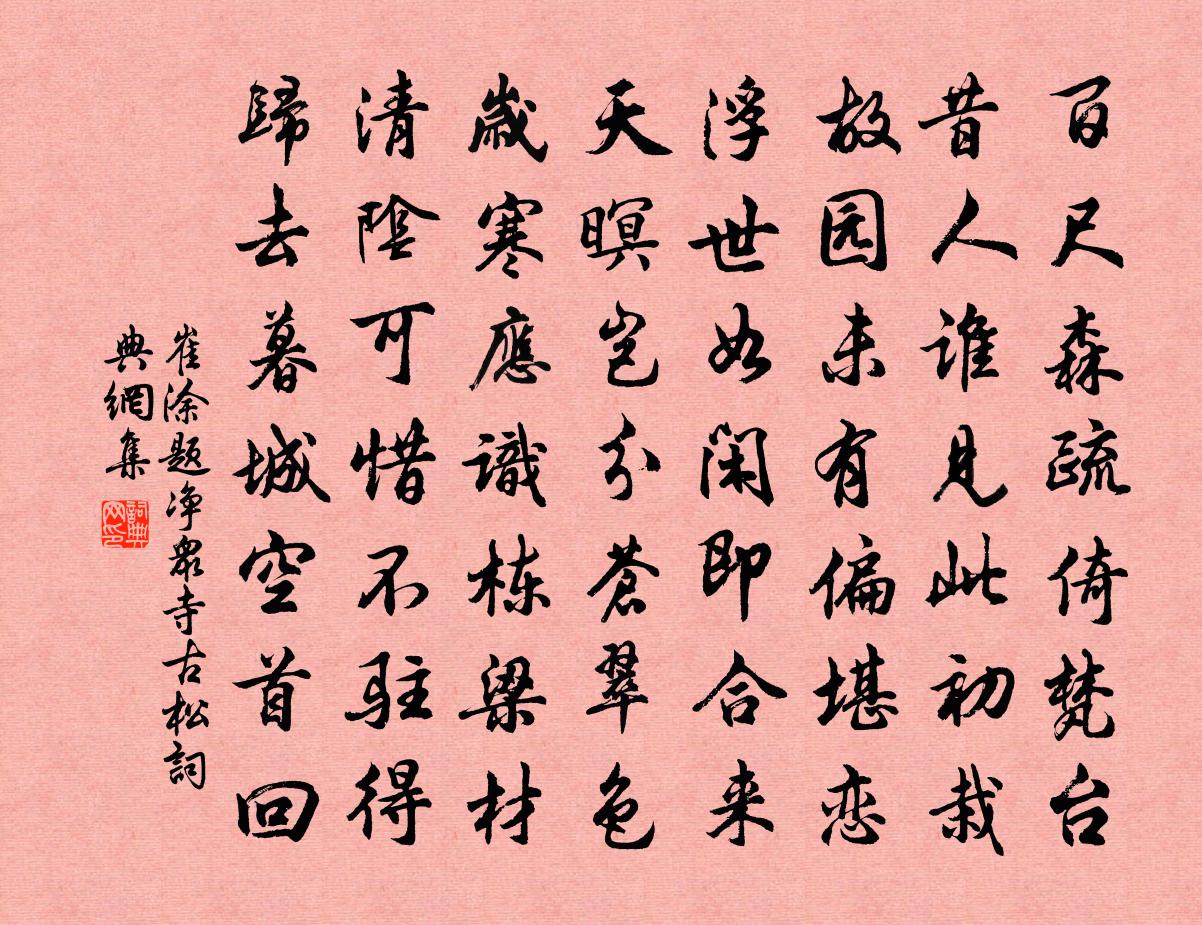 百尺森疏倚梵台
昔人谁见此初栽
故园未有偏堪恋
浮世如闲即合来
天暝岂分苍翠色
歲寒應識栋梁材
清陰可惜不驻得
歸去暮城空首回
崔涂题净眾寺古松詞
典網集
詞典网印